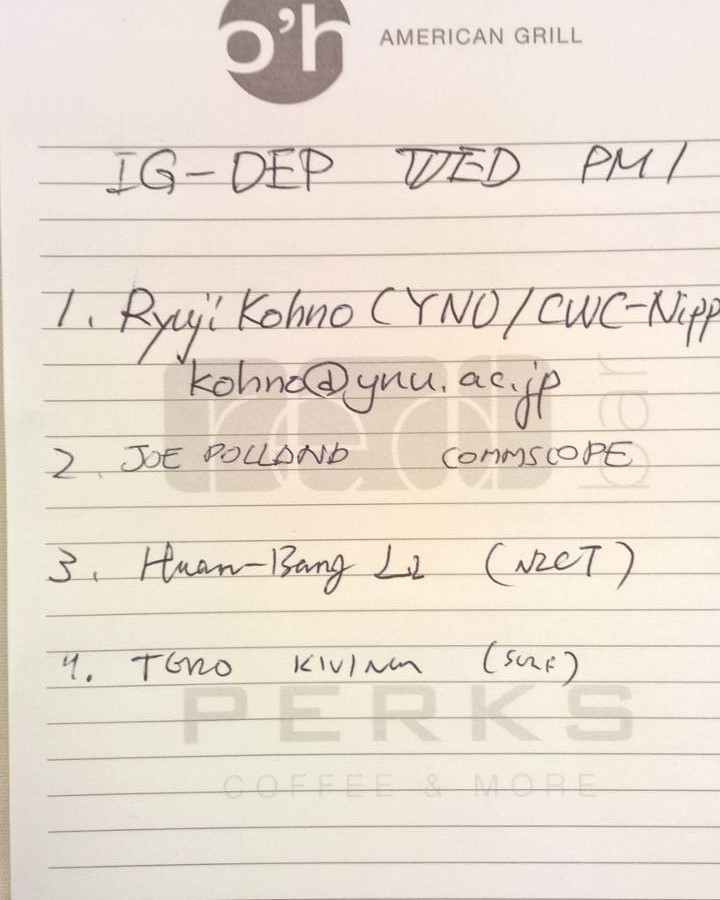 o'h AMERICAN GRILL
IG-DEP WED PM1
1. Ryuji Kohno (YNU/CWC-Nipp
kohno@ynu.ac.jp
2. JOE POLLAND COMMSCOPE
3. Huan-Bang Li (NICT)
4. TERO KIVINEN
red bar
PERKS
COFFEE & MORE